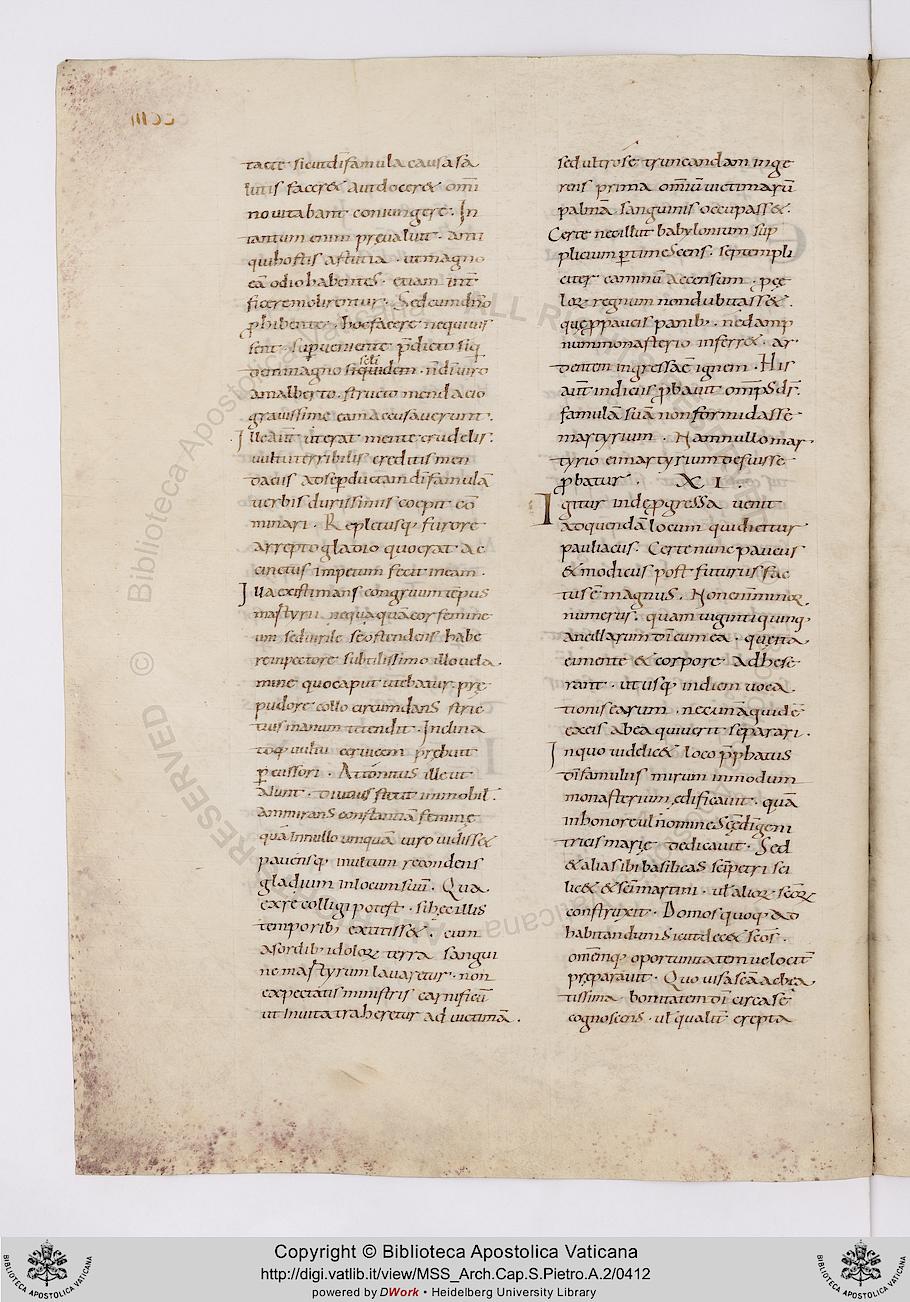 tacte · sicut dī famula causa sa
lutis facer& aut docer& om̄i
no vitabant coniungere · In
tantum enim pręvaluit · anti
qui hostis astutia · ut magno
eā odio habentes · etiam int̄
ficere molirentur · Sed cum dn̄o
ꝓhibente · hoc facere nequivis
sent · superveniente p̄dicto siq
dem magno siquidem · n̄ dī viro
amalberto · structo mendacio
gravissime eam accusaverunt ·
Ille aut̄ ut erat mente crudelis ·
vultu terribilis creditis men
daciis ad sep̄dictam dī famulā
verbis durissimis coepit cō
minari · Repletusq; furore
arrepto gladio quo erat ac
cinctus impetum fecit in eam ·
Illa existimans congruum tēpus
martyrii · nequaquā cor femine
um sed virile se ostendens habe
re in pectore subtilissimo illo vela
mine quo caput utebatur · prę
pudore collo circumdans stric
tius manum tetendit · Indina
toq; vultu cervicem prębuit
ꝑcussori · Attonitus ille ut
aiunt · diutius stetit immobil̄ ·
ammirans constantiā feminę
quā in nullo umquam viro vidiss&
pavensq; multum recondens
gladium in locum suū · Qua
ex re colligi potest · si hęc illis
temporib; extitiss& · cum
a sordib; idolorę terra sangui
ne martyrum lavaretur · non
expectatis ministris carnificū
ut invita traheretur ad victimā ·
sed ultro se truncandam inge
rens prima omīu victimarū
palmā sanguinis occupass& ·
Certe nec illut babylonium sup
plicium ꝑtimescens · septempli
citer caminū accensum · pęe
lor regnum non dubitass& ·
quę p paucis panib; n̄ dam p
num monasterio inferr& · ar
dentem ingressa ēē ignem · His
aut̄ indiciis ꝓbavit om̄ps ds̄ ·
famulā suā non formidasse
martyrium · Nam nullo mar
tyrio ei martyrium defuisse
ꝓbatur · XI ·
Igitur inde ęgressa venit
ad quendā locum qui dicitur
pauliacus · Certe nunc paucus
& modicus post futurus fac
tus ē magnus · Non enī minor
numerus · quam viginti quinq;
ancillarum dī cum ea · quę ita
ei mente & corpore adhese
rant · ut usq; in diem voca
tionis earum · nec unā quidē
ex eis ab ea quiverit separari ·
In quo videlic& loco p̄probatus
dī famulus mirum in modum
monasterium ędificavit · quā
in honore vl̄ nomine Scē dī geni
tricis marię dedicavit · Sed
& alias ibi basilicas scī petri sci
lic& & scī martini · vl̄ alior scōr
construxit · Domos quoq; ad
habitandum Sicut dec& scōs ·
omēmq; oportunitatem velociī
pręparavit · Quo visa scā a ebea
tissima · bonitatem dī circa sē
cognoscens · vl̄ qualit̄ erepta
Copyright © Biblioteca Apostolica Vaticana
http://digi.vatlib.it/view/MSS_Arch.Cap.S.Pietro.A.2/0412
powered by DWork • Heidelberg University Library